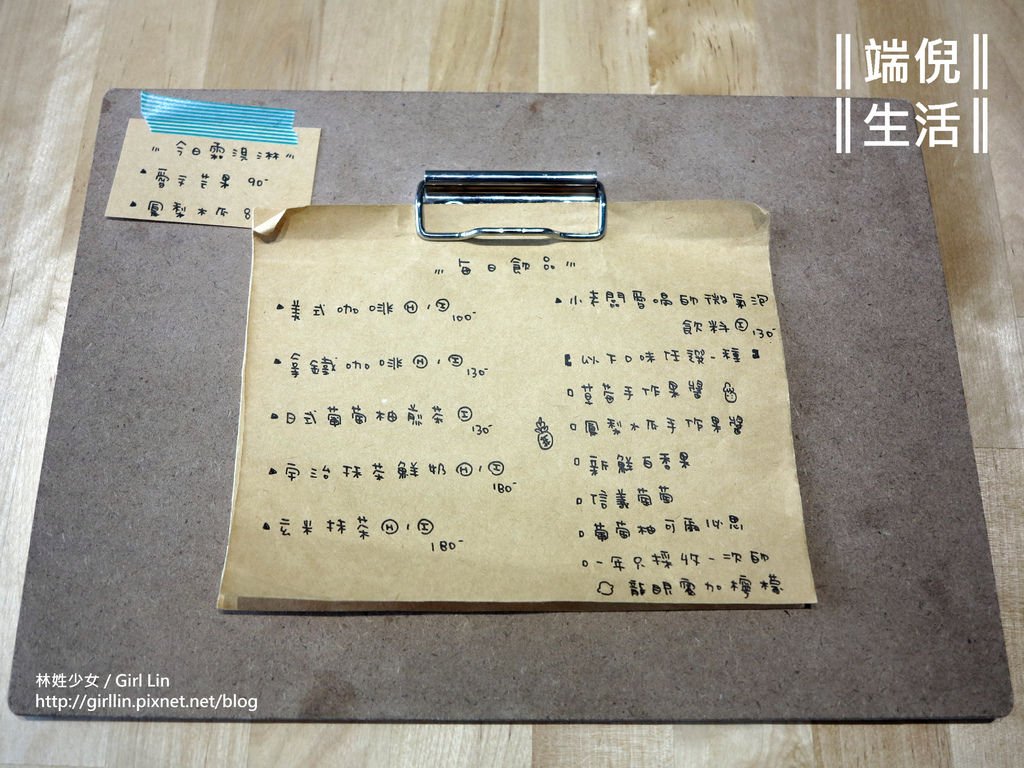 端倪
生活
〃今日霜淇淋〃
▲雪芋芒果 90-
▲鳳梨木瓜 8
〃每日飲品〃
▲美式咖啡Ⓗ,Ⓘ 100-
▲拿鐵咖啡Ⓗ,Ⓘ 130-
▲日式葡萄柚煎茶Ⓘ 130-
▲宇治抹茶鮮奶Ⓗ,Ⓘ 180-
▲玄米抹茶Ⓗ,Ⓘ 180-
▲小老闆 的微氣泡
飲料Ⓘ 130-
【以下口味任選一種】
□草莓手作果醬
□鳳梨木瓜手作果醬
□新鮮百香果
□信義葡萄
□葡萄柚可爾必思
□一年只採收一次的
龍眼蜜加檸檬
林姓少女 / Girl Lin
http://girllin.pixnet.net/blog